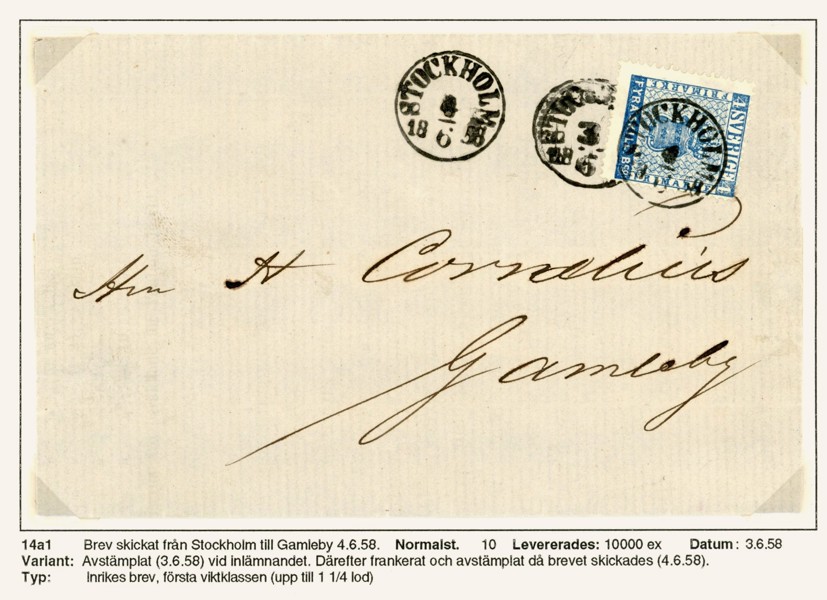 STOCKHOLM
4
6
18 58
STOCK
3
6
18
STOCKHOLM
4
SVERIGE
FRIMÄRKE
FYRA
Hrr H Cornelius
Gamleby
14a1 Brev skickat från Stockholm till Gamleby 4.6.58. Normalst. 10 Levererades: 10000 ex Datum: 3.6.58
Variant: Avstämplat (3.6.58) vid inlämnandet. Därefter frankerat och avstämplat då brevet skickades (4.6.58).
Typ: Inrikes brev, första viktklassen (upp till 1 1/4 lod)